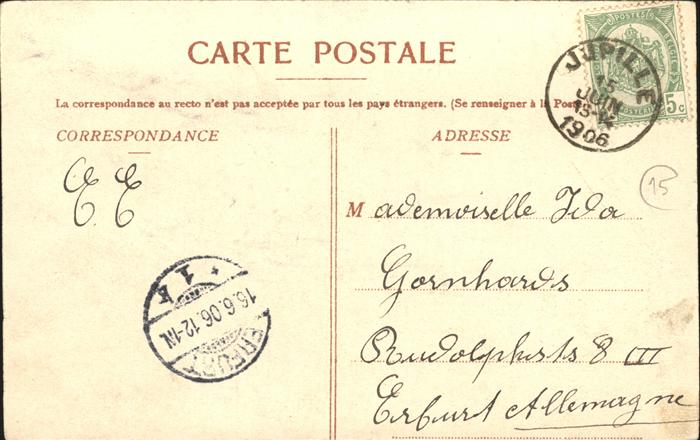 CARTE POSTALE
La correspondance au recto n'est pas acceptée par tous les pays étrangers. (Se renseigner à la Poste
CORRESPONDANCE
ADRESSE
E E
Mademoiselle Ida
Gornhards
Rudolphsts 8 III
Erfurt Allemagne
JUPILLE
15
JUIN
1906
5c
POSTES
15
ERFURT
16.6.06.12-1N.
* 1 k